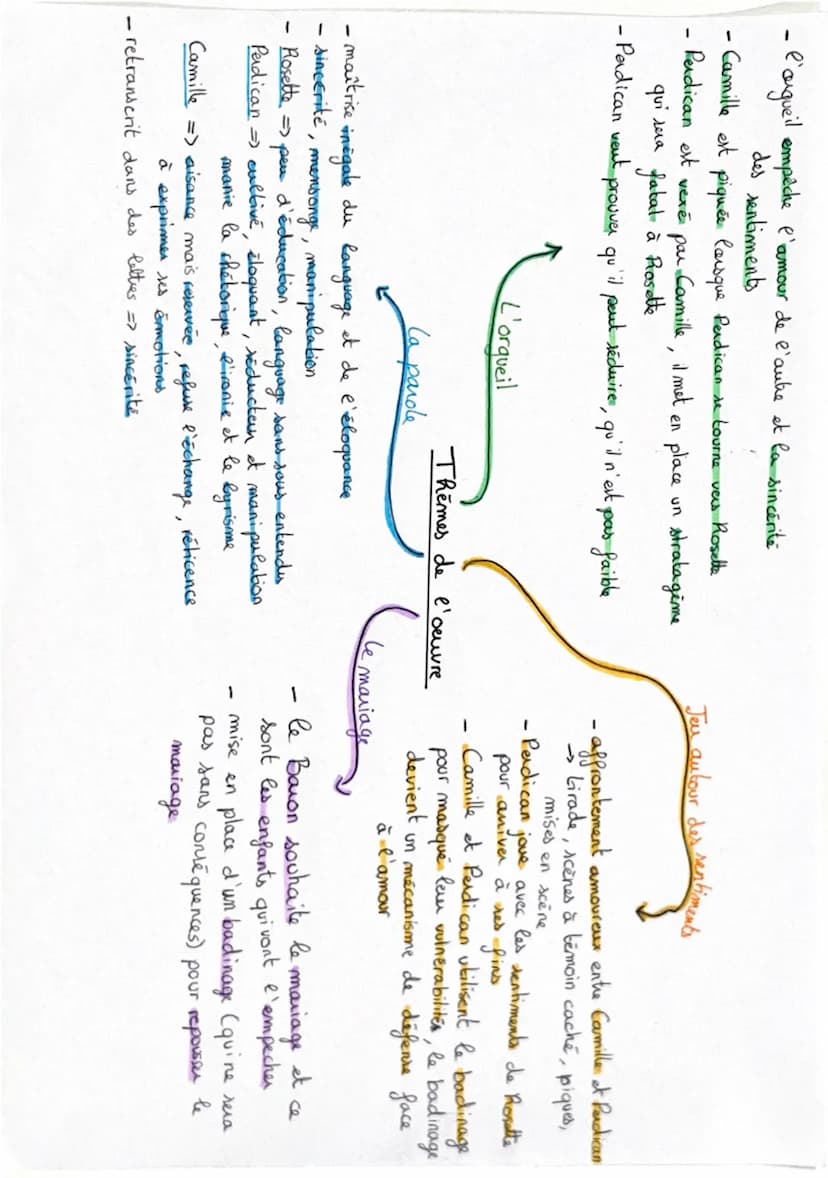 Thèmes de l'oeuvre
L'orgueil
- l'orgueil empêche l'amour de l'autre et la sincérité
des sentiments
- Camille est piquée lorsque Perdican se tourne vers Rosette
- Perdican est vexé par Camille, il met en place un stratagème
qui sera fatal à Rosette
- Perdican veut prouver qu'il peut séduire, qu'il n'est pas faible
Jeu autour des sentiments
- affrontement amoureux entre Camille et Perdican
→ tirade, scènes à témoin caché, piques,
mises en scène
- Perdican joue avec les sentiments de Rosette
pour arriver à ses fins
- Camille et Perdican utilisent le badinage
pour masqué leur vulnérabilités, le badinage
devient un mécanisme de défense face
à l'amour
La parole
- maîtrise inégale du language et de l'éloquance
- sincérité, mensonge, manipulation
- Rosette => peu d'éducation, language sans sous entendu
Perdican => cultivé, éloquant, séducteur et manipulation
manie la rhétorique, l'ironie et le lyrisme
Camille => aisance mais réservée, refuse l'échange, réticence
à exprimer ses émotions
- retranscrit dans des lettres => sincérité
Le mariage
- le Baron souhaite le mariage et ce
sont les enfants qui vont l'empecher
- mise en place d'un badinage (qui ne sera
pas sans conséquences) pour repousser le
mariage